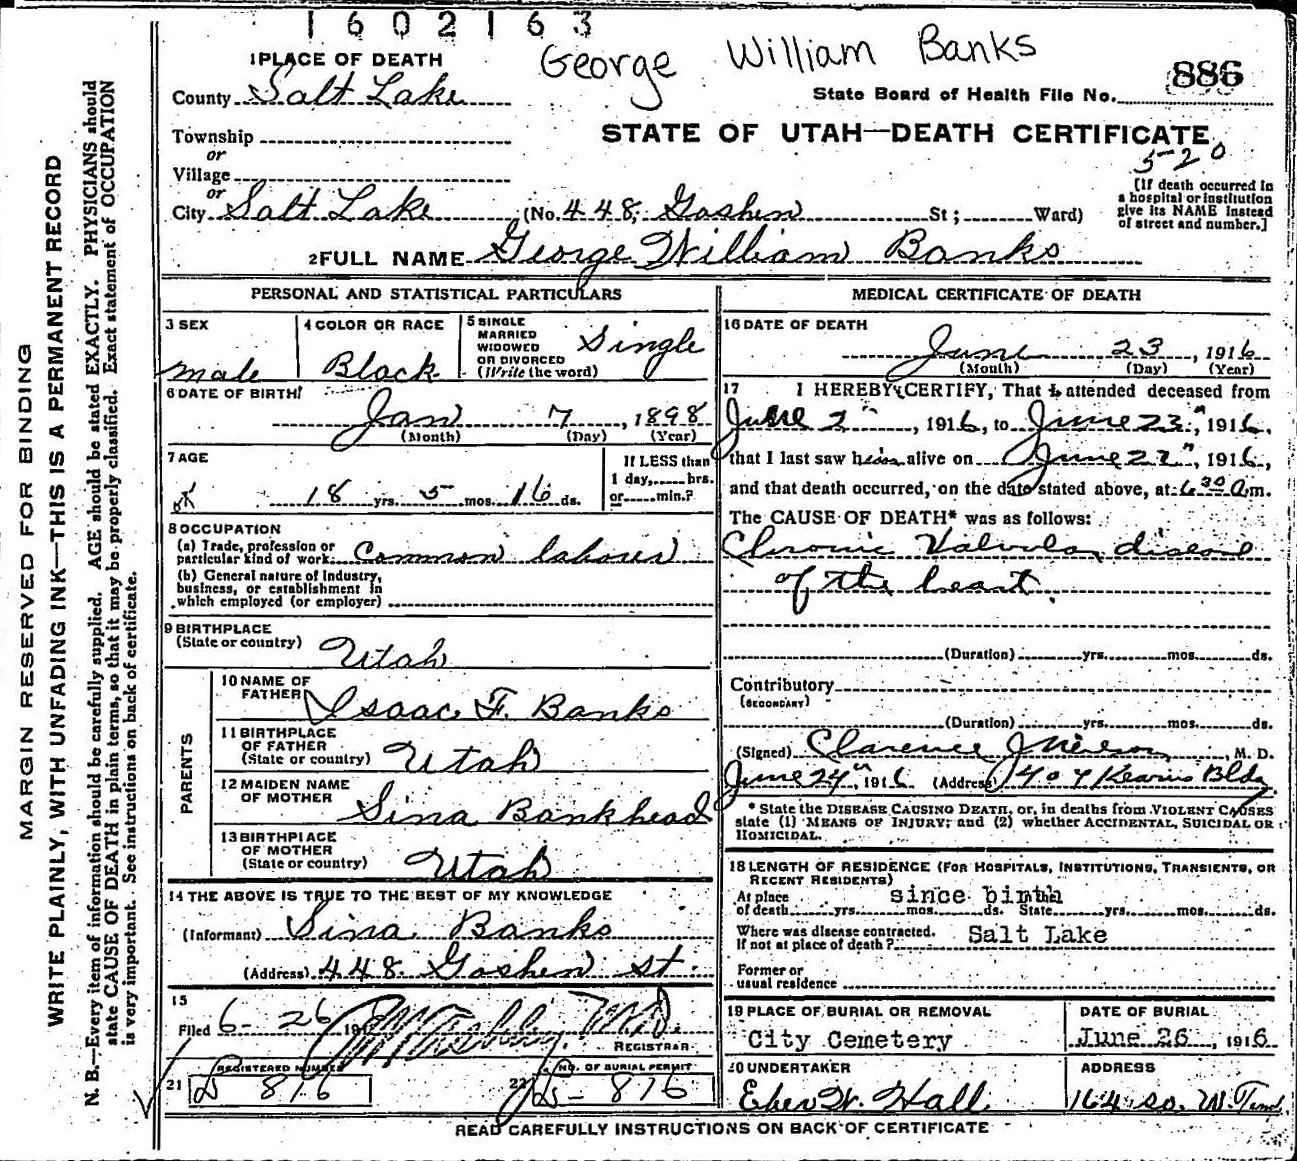 1602163
George William Banks
886
1 PLACE OF DEATH
County Salt Lake
State Board of Health File No.
Township
or
Village
or
STATE OF UTAH—DEATH CERTIFICATE
5-20
[If death occurred in
a hospital or institution
give its NAME instead
of street and number.]
City Salt Lake (No. 448 Goshen St; Ward)
2 FULL NAME George William Banks
PERSONAL AND STATISTICAL PARTICULARS
3 SEX
male
4 COLOR OR RACE
Black
5 SINGLE
MARRIED
WIDOWED
OR DIVORCED
(Write the word)
Single
6 DATE OF BIRTH
Jan 7, 1898
(Month) (Day) (Year)
7 AGE
18 yrs. 5 mos. 16 ds.
If LESS than
1 day, hrs.
or min.?
8 OCCUPATION
(a) Trade, profession or
particular kind of work common laborer
(b) General nature of industry,
business, or establishment in
which employed (or employer)
9 BIRTHPLACE
(State or country)
Utah
PARENTS
10 NAME OF
FATHER
Isaac F. Banks
11 BIRTHPLACE
OF FATHER
(State or country)
Utah
12 MAIDEN NAME
OF MOTHER
Sina Bankhead
13 BIRTHPLACE
OF MOTHER
(State or country)
Utah
14 THE ABOVE IS TRUE TO THE BEST OF MY KNOWLEDGE
(Informant) Sina Banks
(Address) 448 Goshen St.
15
Filed 6-26 191 M.D.
REGISTRAR
REGISTERED NUMBER
21 D 816
NO. OF BURIAL PERMIT
22 D- 816
MEDICAL CERTIFICATE OF DEATH
16 DATE OF DEATH
June 23, 1916
(Month) (Day) (Year)
17 I HEREBY CERTIFY, That I attended deceased from
June 2", 1916, to June 23", 1916,
that I last saw him alive on June 22", 1916,
and that death occurred, on the date stated above, at 6 30 a.m.
The CAUSE OF DEATH* was as follows:
Chronic Valvular disease
of the heart.
(Duration) yrs. mos. ds.
Contributory
(SECONDARY)
(Duration) yrs. mos. ds.
(Signed) Clarence J, M. D.
June 24", 1916 (Address) 1407 Kearns Bldg
* State the DISEASE CAUSING DEATH, or, in deaths from VIOLENT CAUSES
state (1) MEANS OF INJURY; and (2) whether ACCIDENTAL, SUICIDAL OR
HOMICIDAL.
18 LENGTH OF RESIDENCE (FOR HOSPITALS, INSTITUTIONS, TRANSIENTS, OR
RECENT RESIDENTS)
since birth
At place In the
of death yrs. mos. ds. State yrs. mos. ds.
Where was disease contracted.
If not at place of death? Salt Lake
Former or
usual residence
19 PLACE OF BURIAL OR REMOVAL
City Cemetery
DATE OF BURIAL
June 26, 1916
20 UNDERTAKER
Eber W. Hall
ADDRESS
164 So. W. Temp
READ CAREFULLY INSTRUCTIONS ON BACK OF CERTIFICATE
MARGIN RESERVED FOR BINDING
WRITE PLAINLY, WITH UNFADING INK—THIS IS A PERMANENT RECORD
N. B.—Every item of information should be carefully supplied. AGE should be stated EXACTLY. PHYSICIANS should
state CAUSE OF DEATH in plain terms, so that it may be properly classified. Exact statement of OCCUPATION
is very important. See instructions on back of certificate.